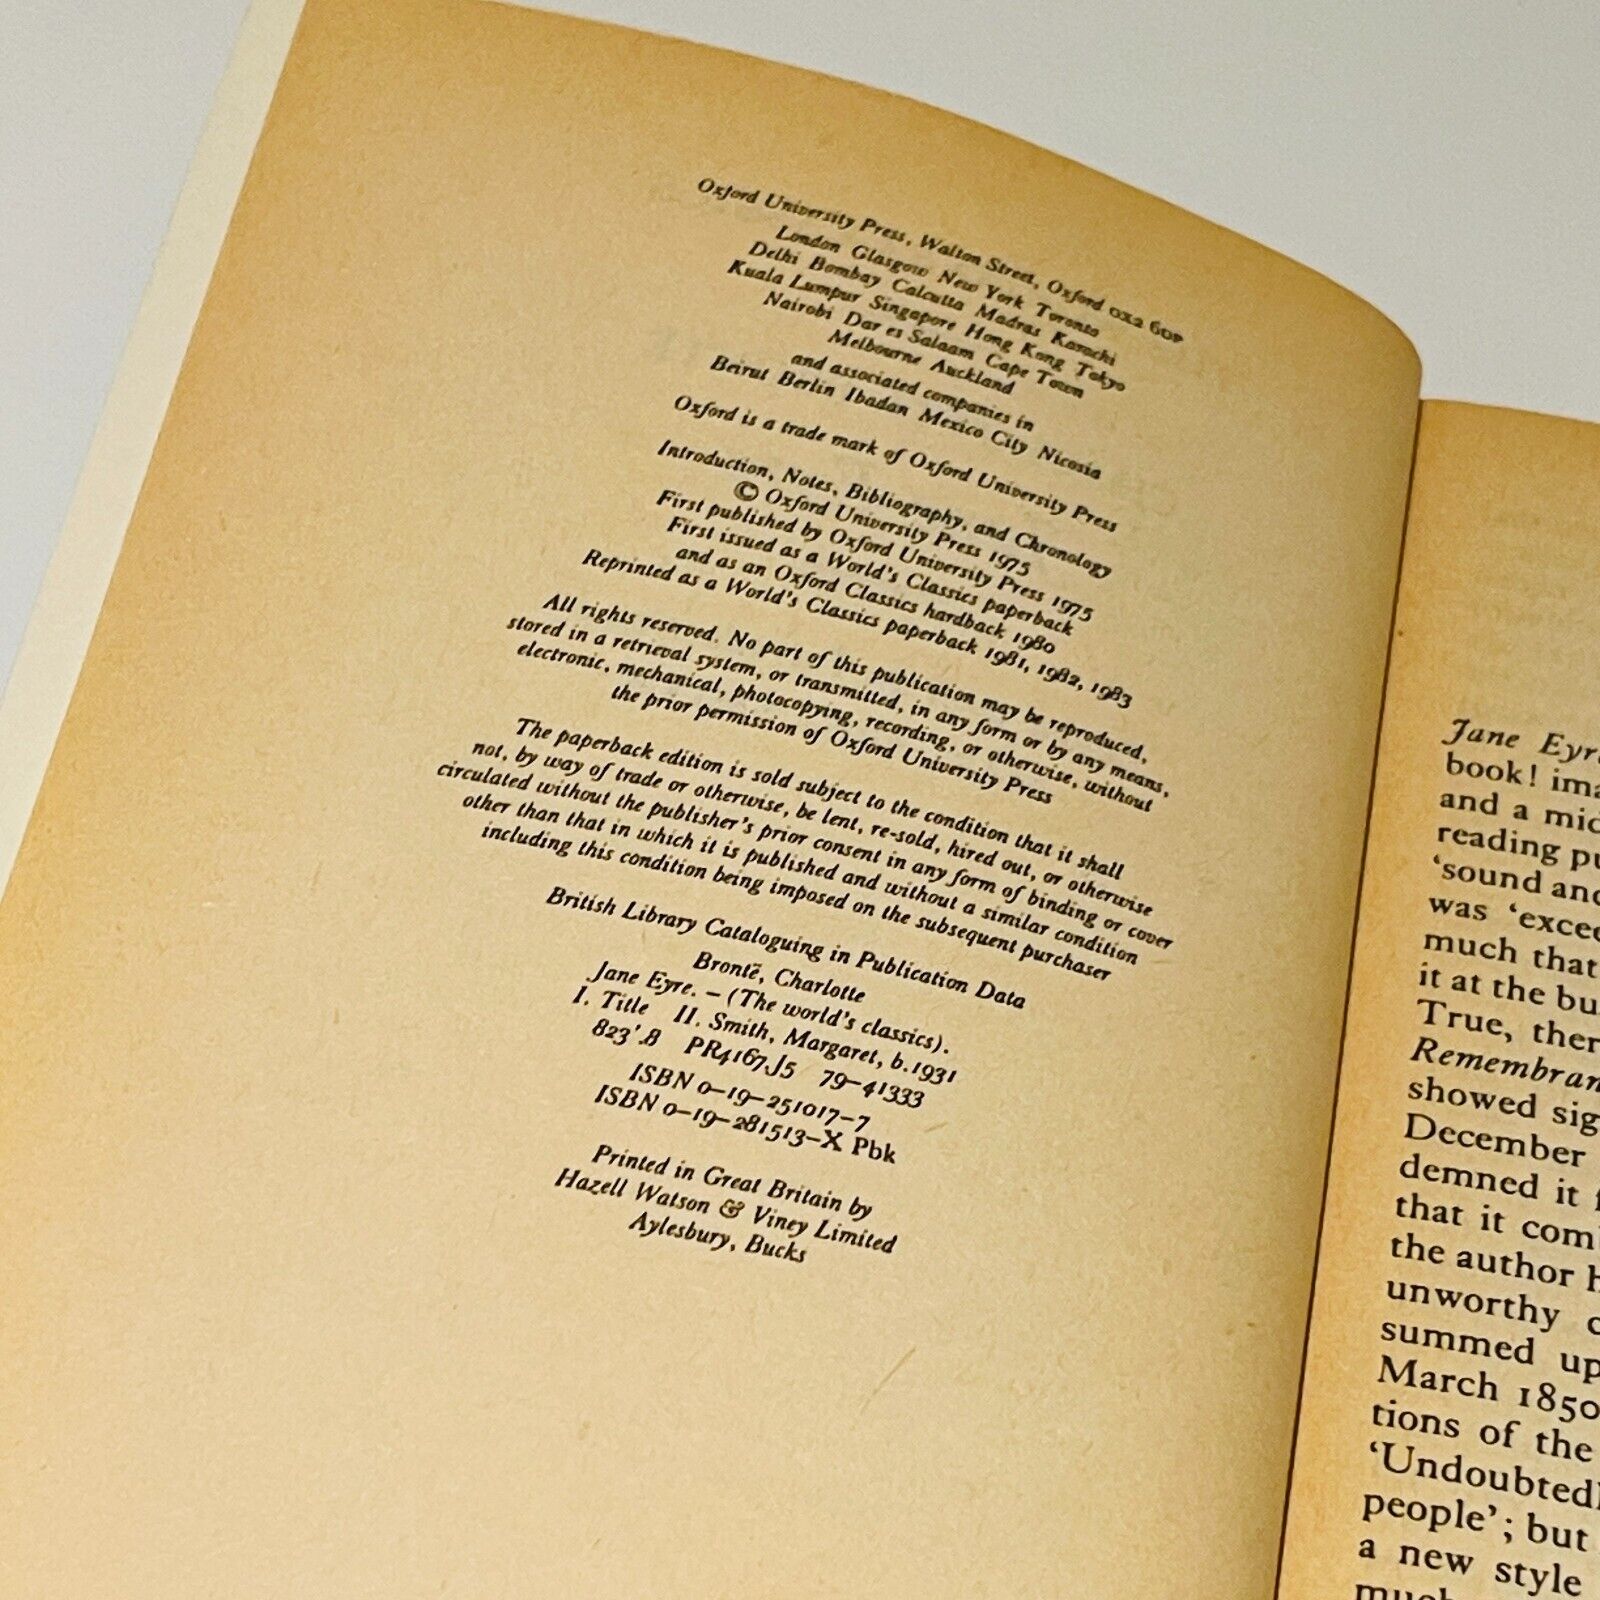 Oxford University Press, Walton Street, Oxford OX2 6DP
London Glasgow New York Toronto
Delhi Bombay Calcutta Madras Karachi
Kuala Lumpur Singapore Hong Kong Tokyo
Nairobi Dar es Salaam Cape Town
Melbourne Auckland
and associated companies in
Beirut Berlin Ibadan Mexico City Nicosia
Oxford is a trade mark of Oxford University Press
Introduction, Notes, Bibliography, and Chronology
© Oxford University Press 1975
First published by Oxford University Press 1975
First issued as a World's Classics paperback
and as an Oxford Classics hardback 1980
Reprinted as a World's Classics paperback 1981, 1982, 1983
All rights reserved. No part of this publication may be reproduced,
stored in a retrieval system, or transmitted, in any form or by any means,
electronic, mechanical, photocopying, recording, or otherwise, without
the prior permission of Oxford University Press
The paperback edition is sold subject to the condition that it shall
not, by way of trade or otherwise, be lent, re-sold, hired out, or otherwise
circulated without the publisher's prior consent in any form of binding or cover
other than that in which it is published and without a similar condition
including this condition being imposed on the subsequent purchaser
British Library Cataloguing in Publication Data
Brontë, Charlotte
Jane Eyre. – (The world's classics).
I. Title II. Smith, Margaret, b.1931
823'.8 PR4167.J5 79–41333
ISBN 0–19–251017–7
ISBN 0–19–281513–X Pbk
Printed in Great Britain by
Hazell Watson & Viney Limited
Aylesbury, Bucks
Jane Eyr
book! ima
and a mid
reading pu
'sound and
was 'excee
much that
it at the bu
True, ther
Remembran
showed sig
December
demned it f
that it com
the author h
unworthy c
summed up
March 1850
tions of the
'Undoubtedl
people'; but
a new style
much